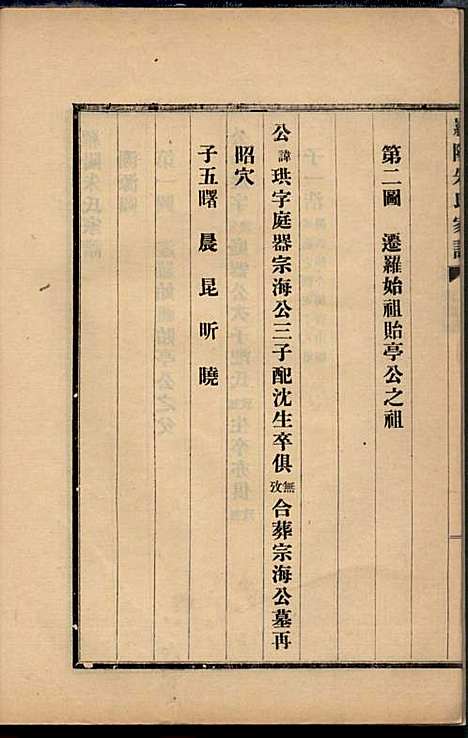 羅陽朱氏家譜
第二圖　遷羅始祖貽亭公之祖
公諱珙字庭器宗海公三子配沈生卒俱無攷合葬宗海公墓再
昭穴
子五曙晨昆昕曉